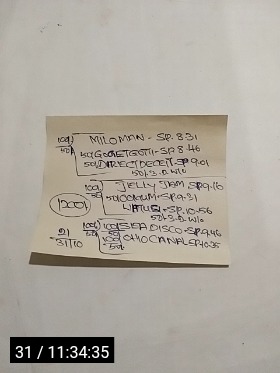 100/50 MILOMAN - SP.8.31
50/ GOGETGETTI - SP.8.46
50/ DIRECT DECEIT - SP.9.01
50/- 3.D. W/O
100/50 JELLY JAM SP.9.16
SP.9.31
1200/-
SP.10.56
50/- 3.D. W/O
21
31/10
100/50 SEA DISCO - SP.9.46
100/50 CANAL SP.10.35
31 / 11:34:35